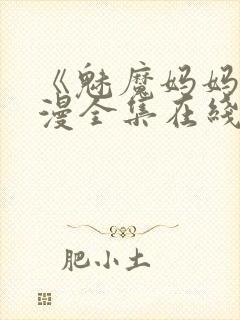 《魅魔妈妈
漫全集在线
肥小土